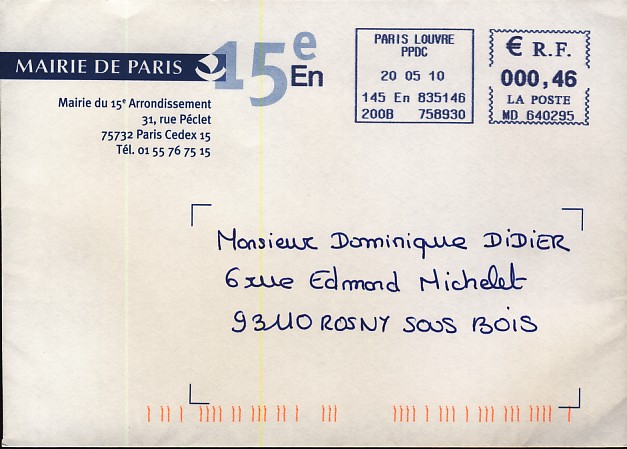 MAIRIE DE PARIS
15e
En
Mairie du 15e Arrondissement
31, rue Péclet
75732 Paris Cedex 15
Tél. 01 55 76 75 15
PARIS LOUVRE
PPDC
20 05 10
145 En 835146
200B 758930
€ R.F.
000,46
LA POSTE
MD 640295
Monsieur Dominique DiDiER
6 rue Edmond Michelet
93110 ROSNY SOUS BOIS